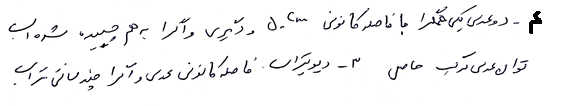 ۴- دو عدسی یکی همگرا با فاصله کانونی ۵۰cm و دیگری واگرا به هم چسبیده شده است
توان عدسی مرکب حاصل ۳- دیوپتر است. فاصله کانونی عدسی واگرا چند سانتی متر است